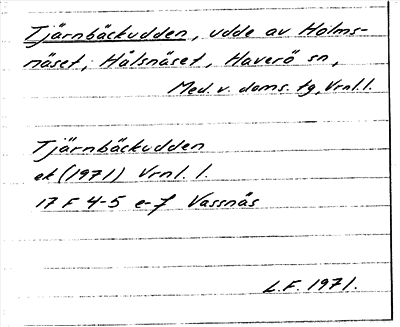 Tjärnbäckudden, udde av Holms-
näset, Hålsnäset, Haverö sn,
Med. v. doms. tg, Vrnl. l.
Tjärnbäckudden
ek (1971) Vrnl. l.
17 F 4-5 e-f Vassnäs
L.F. 1971.